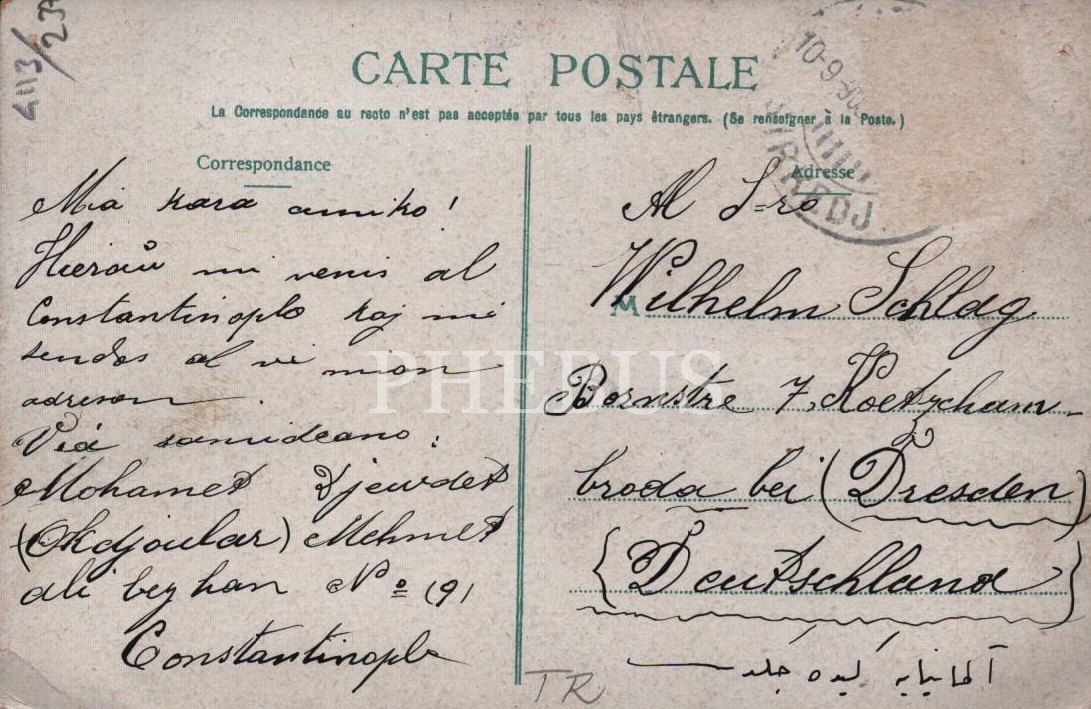 4113/23
CARTE POSTALE
La Correspondance au recto n'est pas acceptée par tous les pays étrangers. (Se renseigner à la Poste.)
10-9-90
Correspondance
Mia kara amiko!
Hieraŭ mi venis al
Constantinoplo kaj mi
sendas al vi mian
adreson.
Via samideano:
Mohamed Djewded
(Okdjoular) Mehmed
ali bey han Nº 191
Constantinople
Adresse
Al S-ro
M Wilhelm Schlag
Bornstre 7, Koetzcham-
broda bei (Dresden)
{Deutschland}
آلمانیایه کیده جکدر
TR
PHEBUS